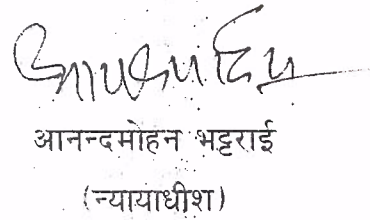 आनन्दमोहन भट्टराई
(न्यायाधीश)